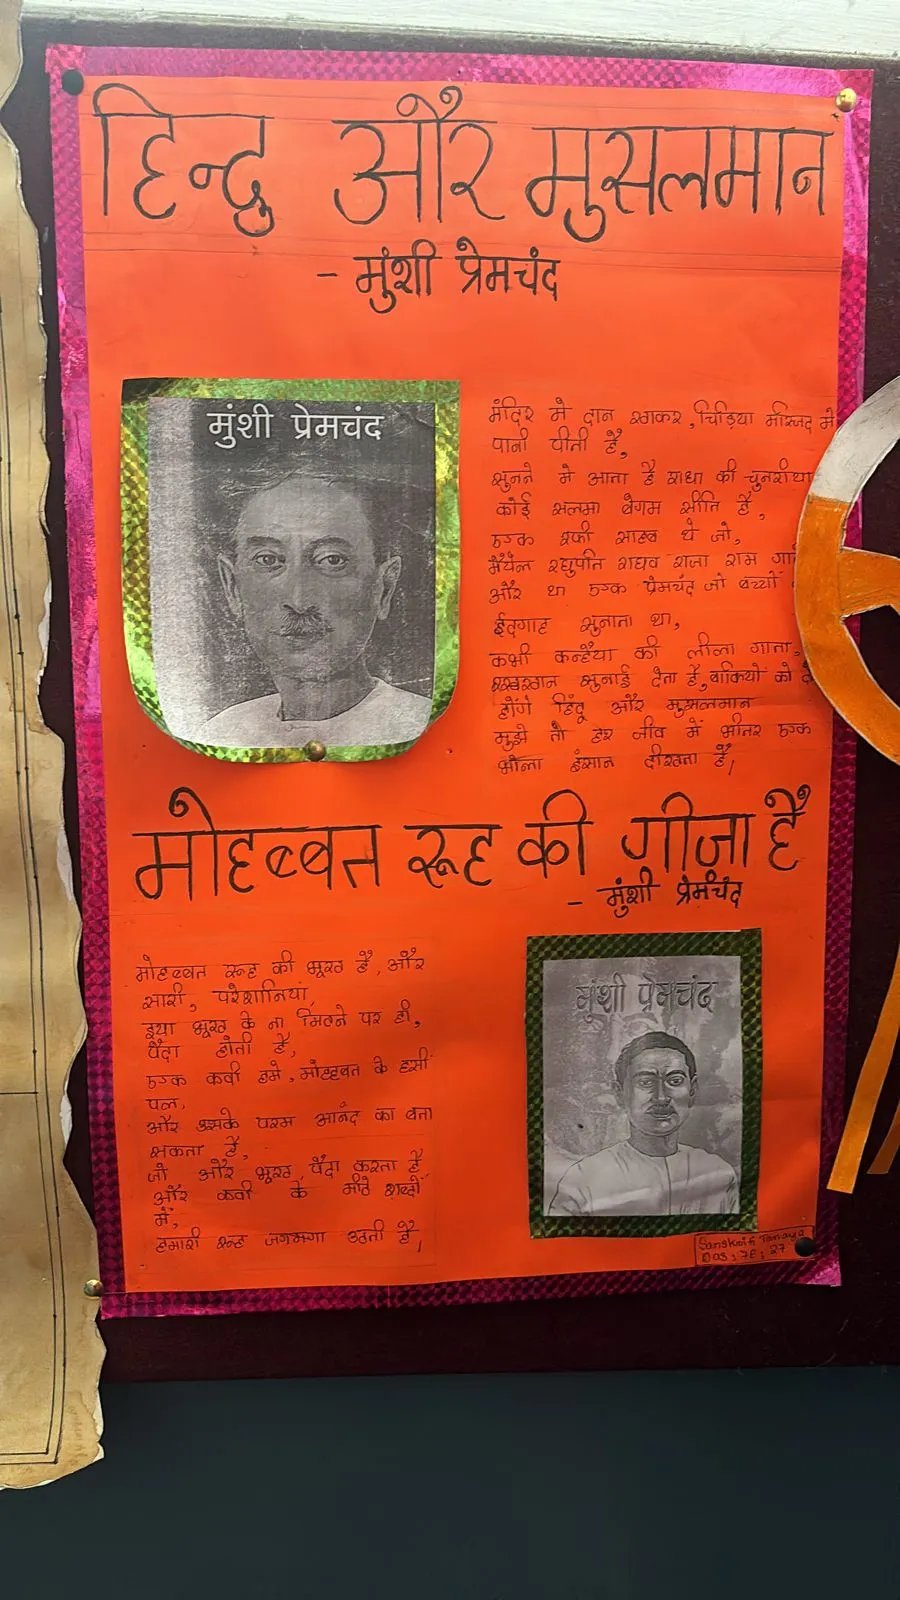 हिन्दु और मुसलमान
- मुंशी प्रेमचंद
मुंशी प्रेमचंद
मंदिर मे दान खाकर, चिड़िया मस्जिद मे
पानी पीती है,
सुनने मे आता है राधा की चुनरीया
कोई सलमा बेगम सीति है,
एक रफी साहब थे जो,
रघुपति राघव राजा राम
और था एक प्रेमचंद जो बच्चों
ईदगाह सुनाता था,
कभी कन्हैया की लीला गाता,
रसखान सुनाई देता है, बाकियों को
होंगे हिंदू और मुसलमान
मुझे तो हर जीव में भीतर एक
भोला इंसान दीखता है।
मोहब्बत रूह की गीजा है
- मुंशी प्रेमचंद
मोहब्बत रूह की भूख है, और
सारी, परेशानियां,
इया भूख के ना मिटने पर ही,
पैदा होती है,
एक कवी हमे, मोहब्बत के हसीं
पल,
और उसके परम आनंद का बता
सकता है,
जो और भूख, पैदा करता है
और कवी के मीठे शब्दों
में,
हमारी रूह जगमगा उठती है।
मुंशी प्रेमचंद